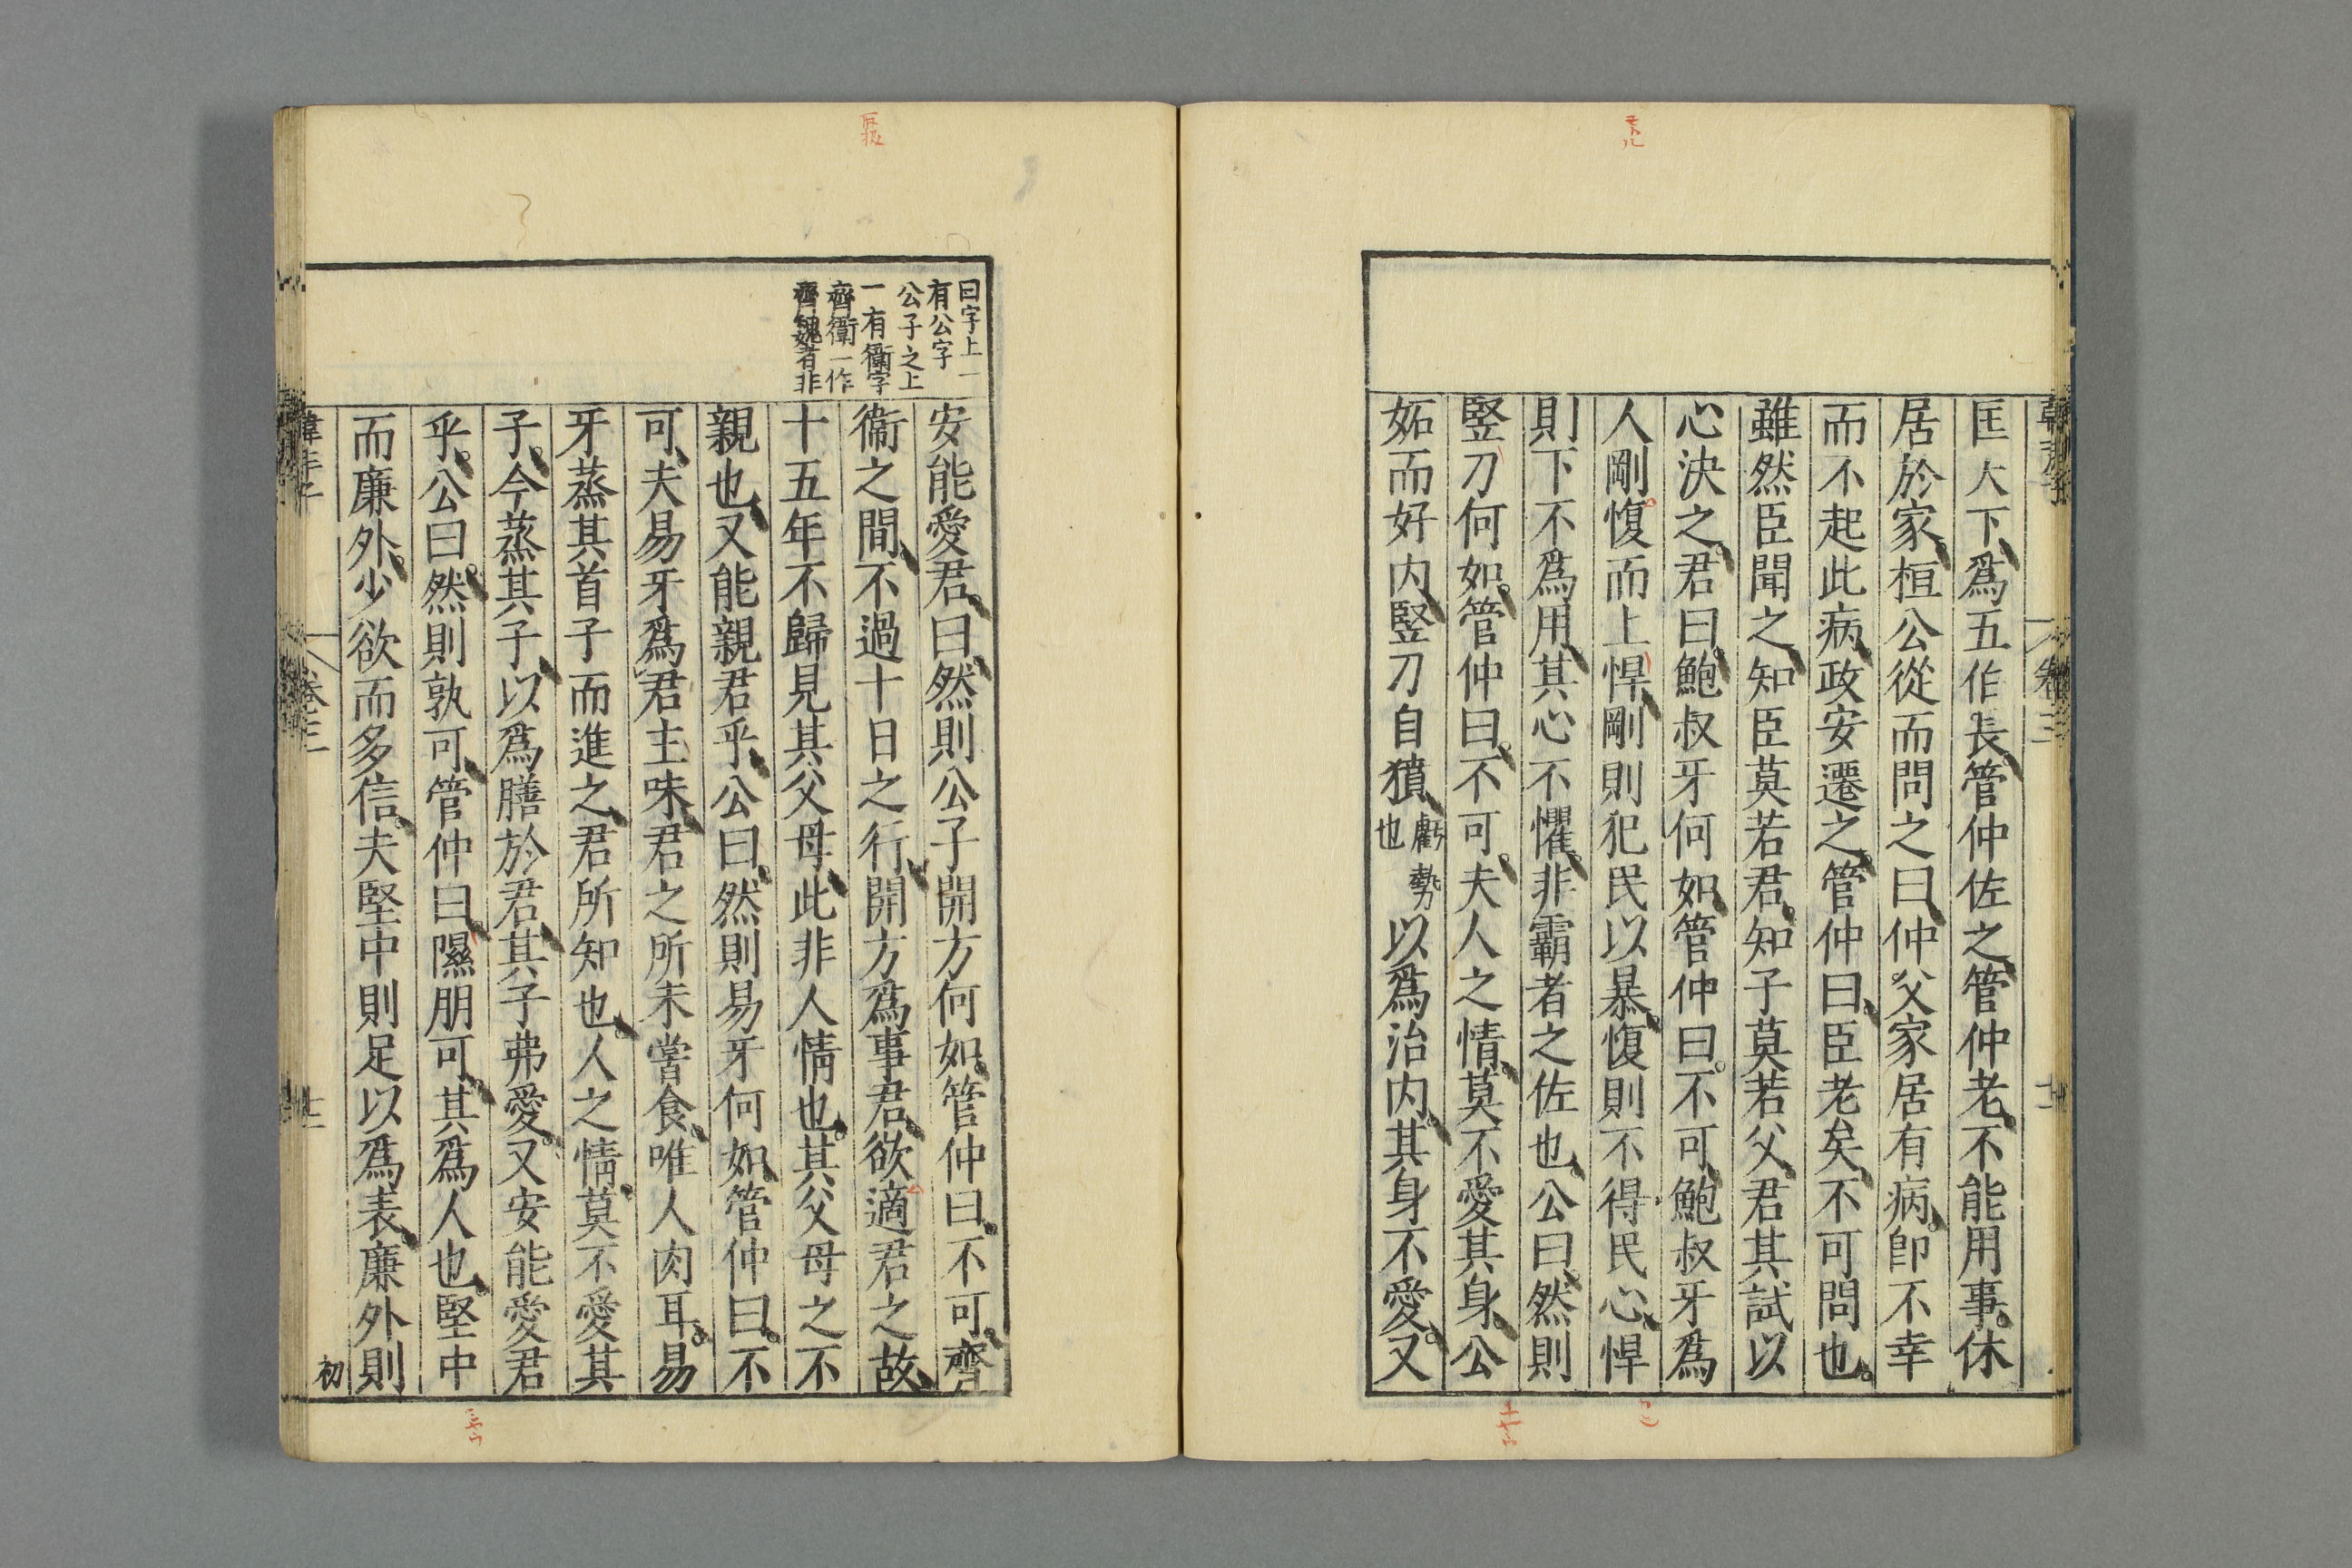 韓非子 卷三 十二
匡天下爲五伯長管仲佐之管仲老不能用事休
居於家桓公從而問之曰仲父家居有病卽不幸
而不起此病政安遷之管仲曰臣老矣不可問也
雖然臣聞之知臣莫若君知子莫若父君其試以
心決之君曰鮑叔牙何如管仲曰不可鮑叔牙爲
人剛愎而上悍剛則犯民以暴愎則不得民心悍
則下不爲用其心不懼非霸者之佐也公曰然則
竪刀何如管仲曰不可夫人之情莫不愛其身公
妬而好内竪刀自獖虧勢也以爲治内其身不愛又
曰字上一
有公字
公子之上
一有衞字
齊衞一作
齊魏者非
安能愛君曰然則公子開方何如管仲曰不可齊
衞之間不過十日之行開方爲事君欲適君之故
十五年不歸見其父母此非人情也其父母之不
親也又能親君乎公曰然則易牙何如管仲曰不
可夫易牙爲君主味君之所未嘗食唯人肉耳易
牙蒸其首子而進之君所知也人之情莫不愛其
子今蒸其子以爲膳於君其子弗愛又安能愛君
乎公曰然則孰可管仲曰隰朋可其爲人也堅中
而廉外少欲而多信夫堅中則足以爲表廉外則
初
韓非子 卷三